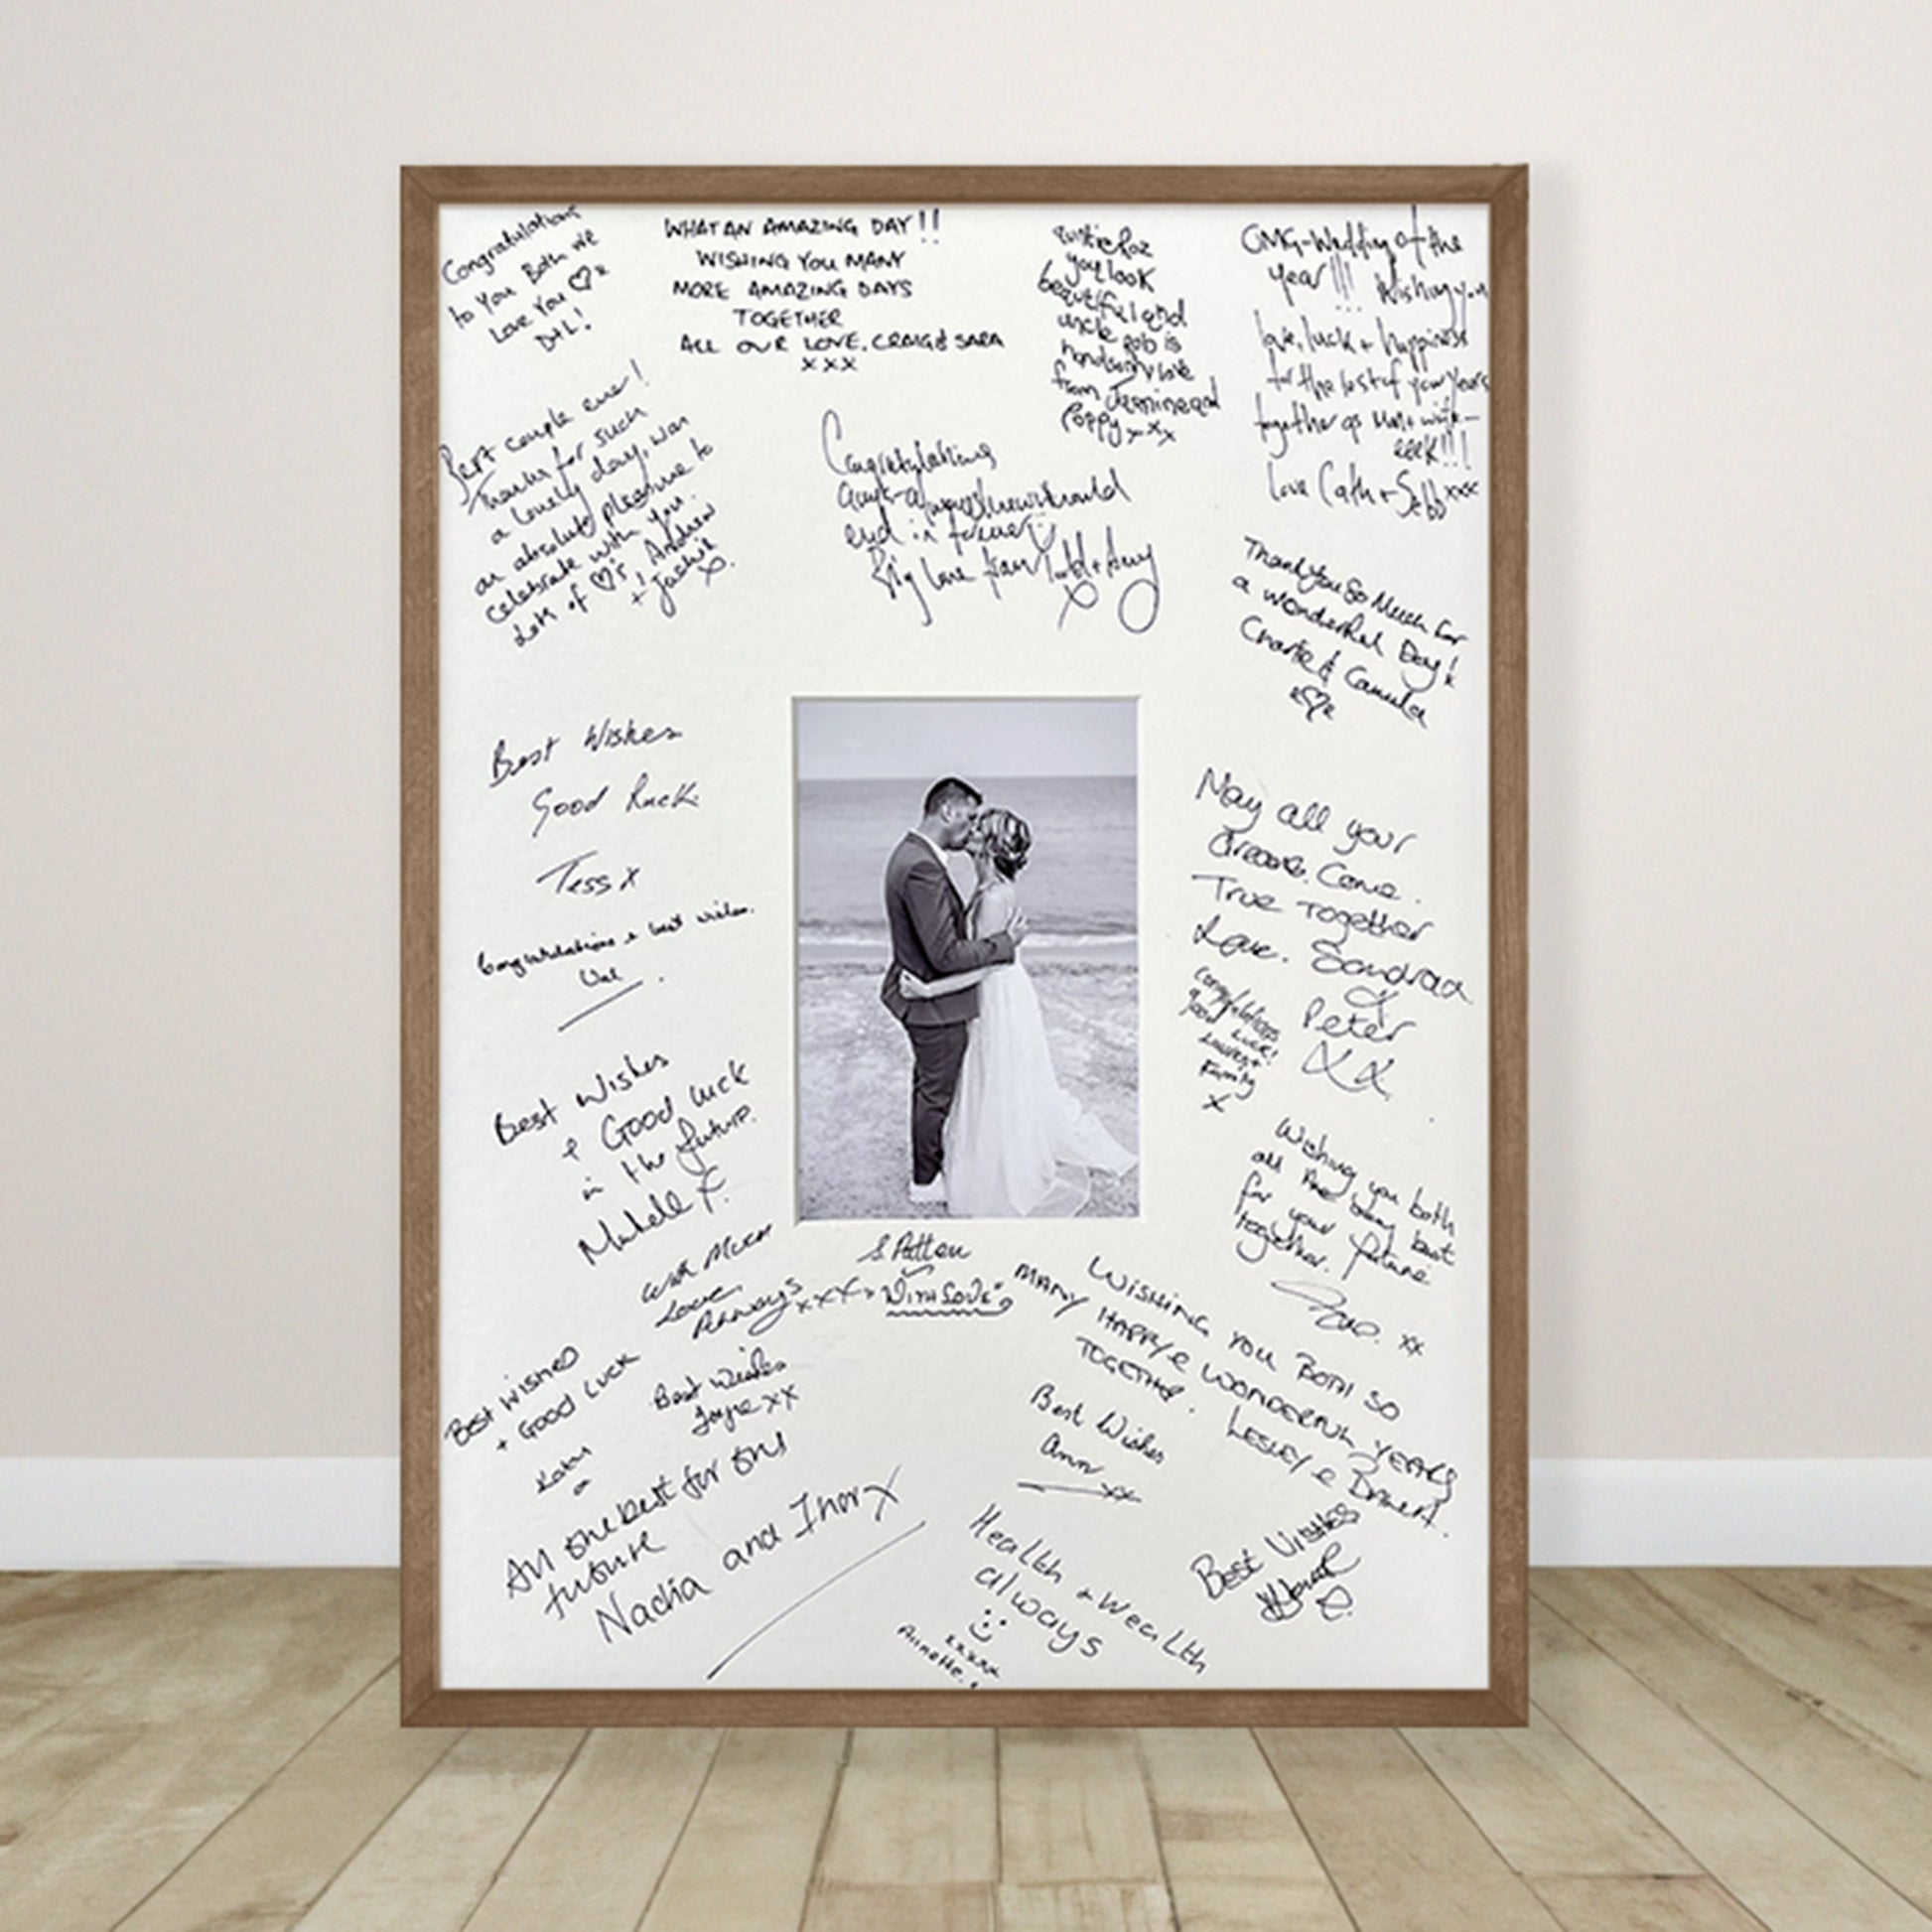 Congratulations
to You Both We
Love You
D+L!
WHAT AN AMAZING DAY!!
WISHING YOU MANY
MORE AMAZING DAYS
TOGETHER
ALL OUR LOVE, CRAIG & SARA
xxx
you look
beautiful and
uncle Rob is
handsom love
from Jasmine and
Poppy xxx
OMG-Wedding of the
Year!!! Wishing you
love, luck + happiness
for the rest of your years
together as
eeek!!!
love Cath + Sebb xxx
Best couple ever!
Thanks for such
a lovely day, was
an absolute pleasure to
celebrate with you.
Lots of ♡'s, Andrew
+ Jackie
x.
Congratulations
end in forever
Big love from + Amy
x
Thank You So Much for
a wonderful Day!
Charlie & Camila
x♡x
Best Wishes
Good Luck
Tess x
Congratulations & best wishes.
Val
May all your
dreams. Come.
True Together
Love. Sandra
&
Peter
xx
Congratulations
good Luck!
Family
x
Best Wishes
& Good luck
in the future.
Michelle x.
Wishing you both
all the very best
for your future
together.
xx
With Much
Love
Always xxxx
S. Patten
"With Love"
WISHING YOU BOTH SO
MANY HAPPY & WONDERFUL YEARS
TOGETHER. LESLEY &
Best Wishes
+ Good Luck
Best Wishes
Jayne xx
Best Wishes
Ann xx
All the best for
future
Nadia and Ihor x
Health + Wealth
always
xxxxx
Annette.
Best Wishes